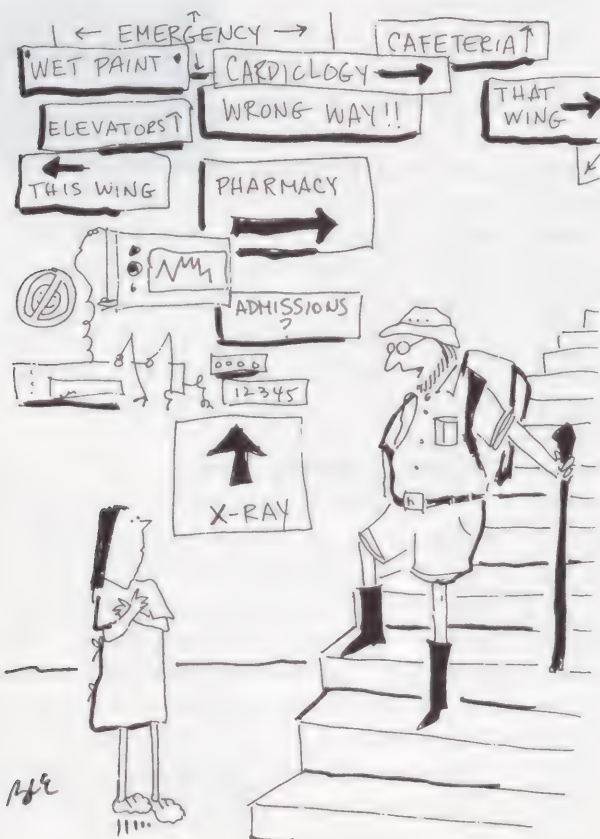 ← EMERGENCY →
CAFETERIA↑
WET PAINT
CARDICLOGY →
WRONG WAY!!
THAT
WING →
ELEVATORS↑
←
THIS WING
PHARMACY
→
ADMISSIONS
?
12345
↑
X-RAY